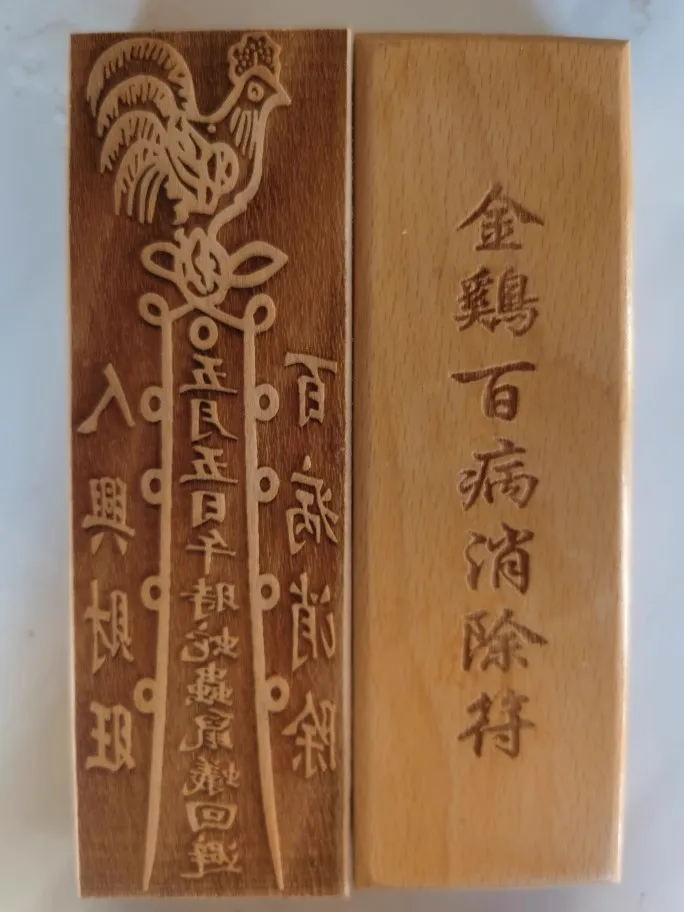 百病消除
五月五日午時蛇蟲鼠蟻回避
人興財旺
金鷄百病消除符